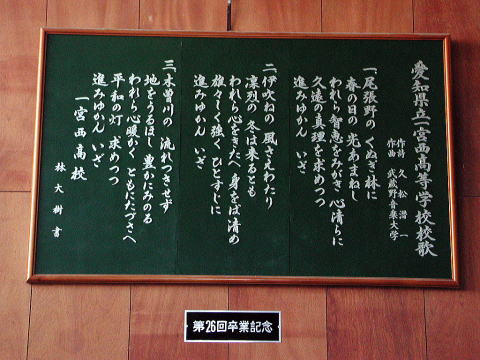 愛知県立一宮西高等学校校歌
作詩 久松潜一
作曲 武蔵野音楽大学
一 尾張野の くぬぎ林に
春の日の 光あまねし
われら智恵をみがき 心清らに
久遠の真理を求めつつ
進みゆかん いざ
二 伊吹ねの 風さえわたり
凛烈の 冬は来るとも
われら心をきたへ 身をば清め
雄々しく強く ひとすじに
進みゆかん いざ
三 木曽川の 流れつきせず
地をうるほし 豊かにみのる
われら心暖かく ともにたづさへ
平和の灯 求めつつ
進みゆかん いざ
一宮西高校
林大樹 書
第26回卒業記念